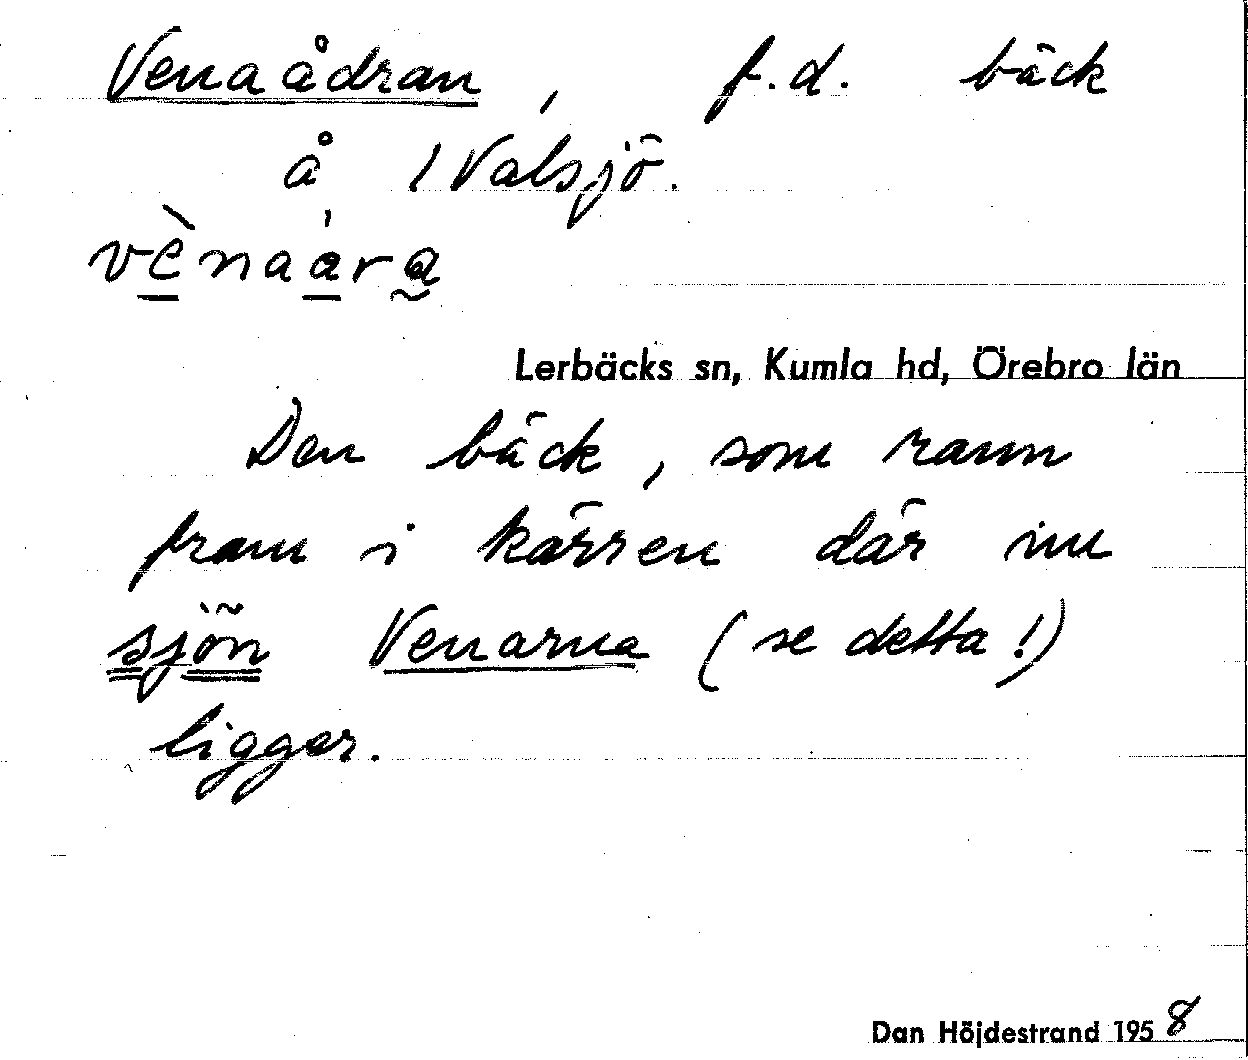 Venaådran, f.d. bäck
å 1 Valsjö.
vènaára
Lerbäcks sn, Kumla hd, Örebro län
Den bäck, som rann
fram i kärren där nu
sjön Venarna (se detta!)
ligger.
Dan Höjdestrand 1958